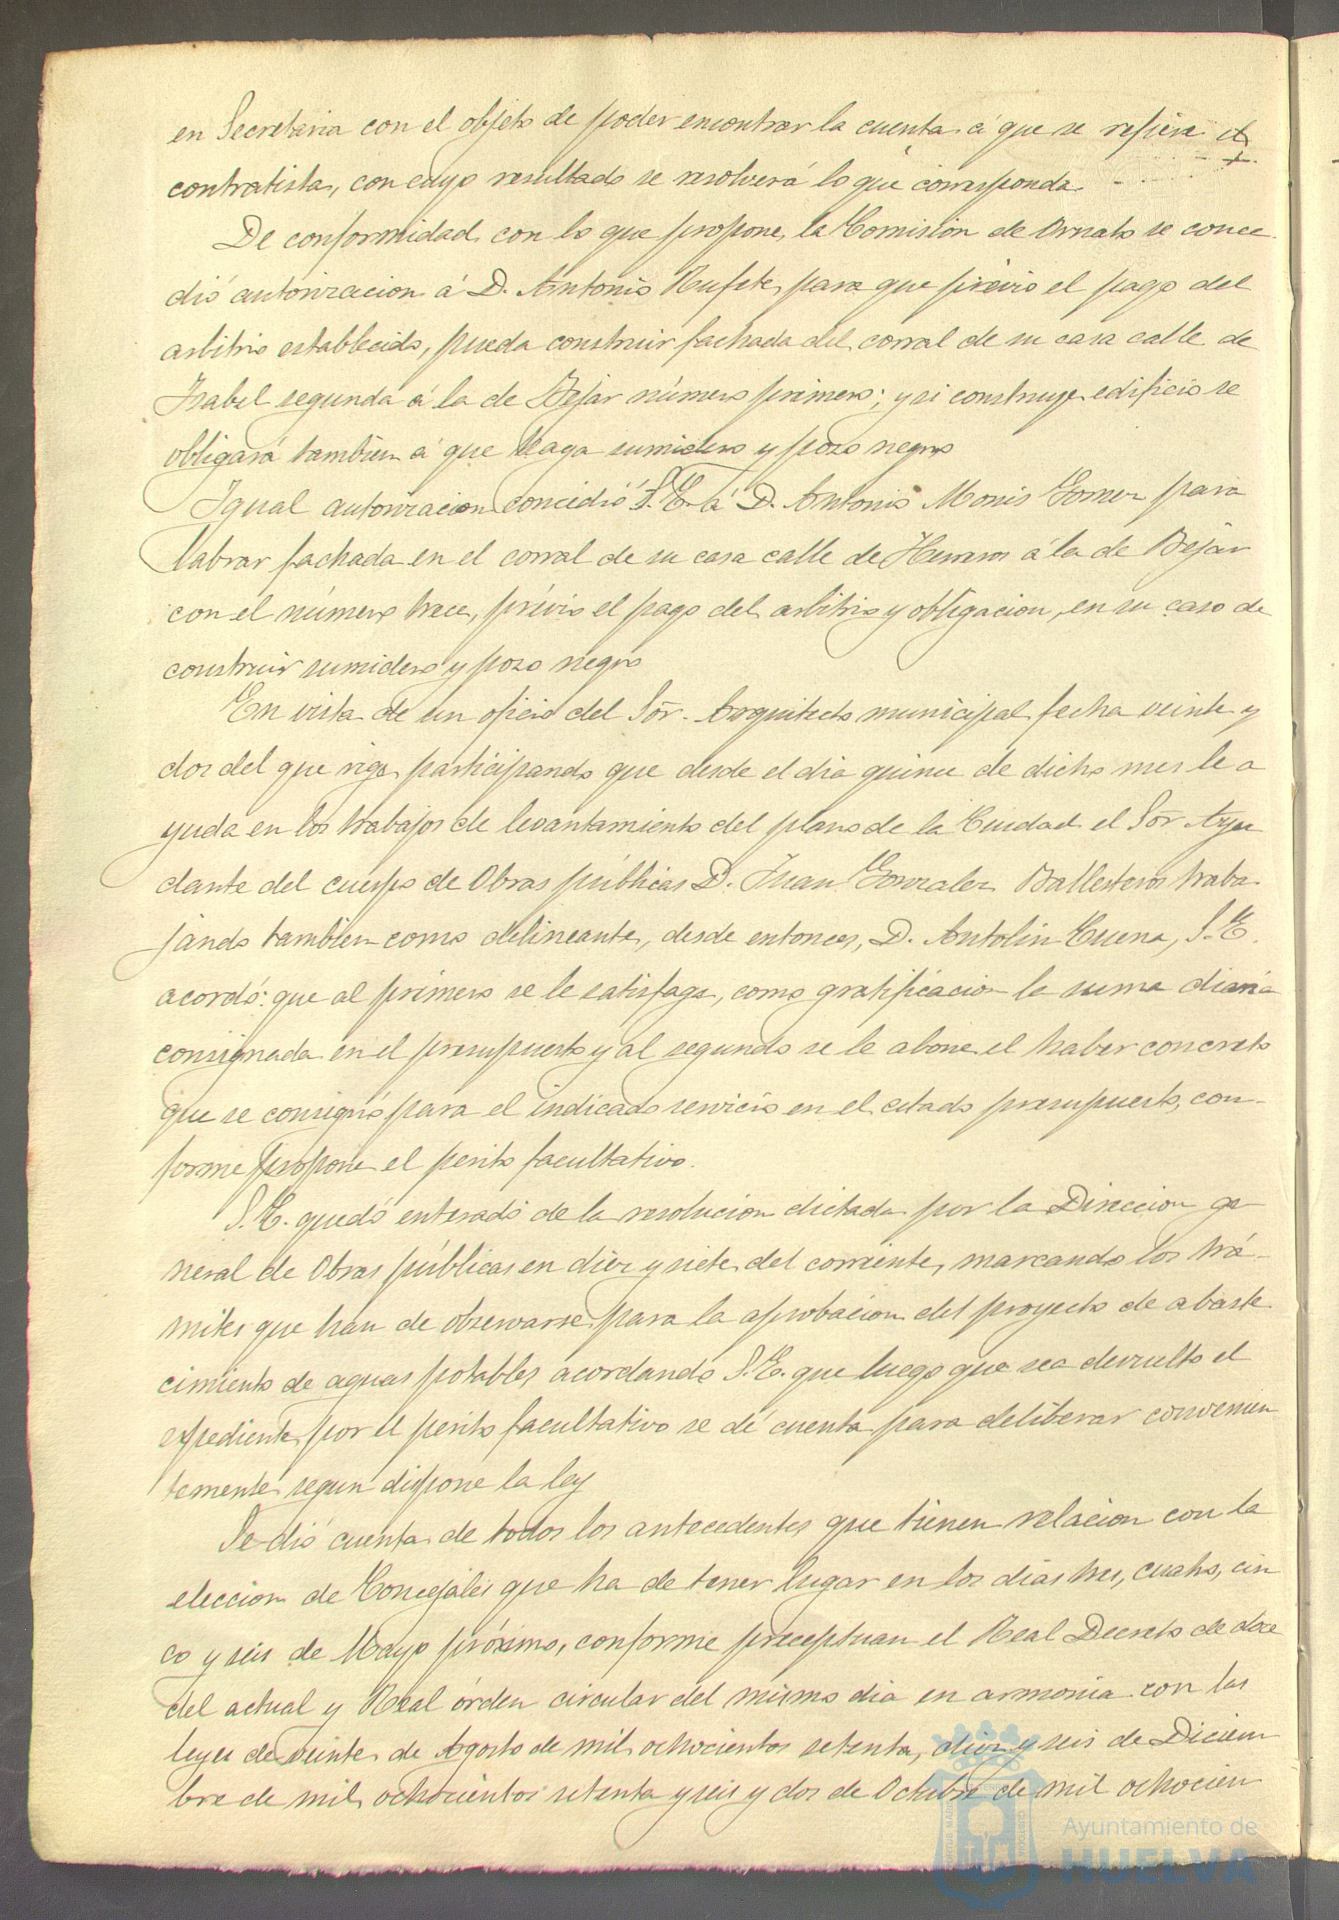 en Secretaria con el objeto de poder encontrar la cuenta á que se refiere el
contratista, con cuyo resultado se resolverá lo que corresponda.
De conformidad con lo que propone la Comision de Ornato se conce
dió autorizacion á D. Antonio Rufete, para que prévio el pago del
arbitrio establecido, pueda construir fachada del corral de su casa calle de
Isabel segunda á la de Bejar número primero; y si construye edificio se
obligará tambien á que haga sumidero y pozo negro
Igual autorizacion concedió S. E. á D. Antonio Monis Gomez para
labrar fachada en el corral de su casa calle de Herreros á la de Bejar
con el número trece, prévio el pago del arbitrio y obligacion, en su caso de
construir sumidero y pozo negro
En vista de un oficio del Sor. Arquitecto municipal fecha veinte y
dos del que rige, participando que desde el dia quince de dicho mes le a
yuda en los trabajos de levantamiento del plano de la Ciudad el Sor Ayu
dante del cuerpo de Obras públicas D. Juan Gonzalez Ballesteros traba-
jando tambien como delineante, desde entonces, D. Antolin Cuena, S. E.
acordó: que al primero se le satisfaga, como gratificacion la suma diaria
consignada en el presupuesto y al segundo se le abone el haber concreto
que se consignó para el indicado servicio en el citado presupuesto, con-
forme propone el perito facultativo.
S. E. quedó enterado de la resolucion dictada por la Direccion ge
neral de Obras públicas en diez y siete del corriente, marcando los trá-
mites que han de observarse para la aprobacion del proyecto de abaste
cimiento de aguas potables acordando S. E. que luego que sea devuelto el
expediente por el perito facultativo se dé cuenta para deliberar convenien
temente segun dispone la ley
Se dió cuenta de todos los antecedentes que tienen relacion con la
eleccion de Concejales que ha de tener lugar en los dias tres, cuatro, cin
co y seis de Mayo próximo, conforme preceptuan el Real Decreto de doce
del actual y Real órden circular del mismo dia en armonia con las
leyes de veinte de Agosto de mil ochocientos setenta, diez y seis de Diciem
bre de mil ochocientos setenta y seis y dos de Octubre de mil ochocien
Ayuntamiento de
HUELVA